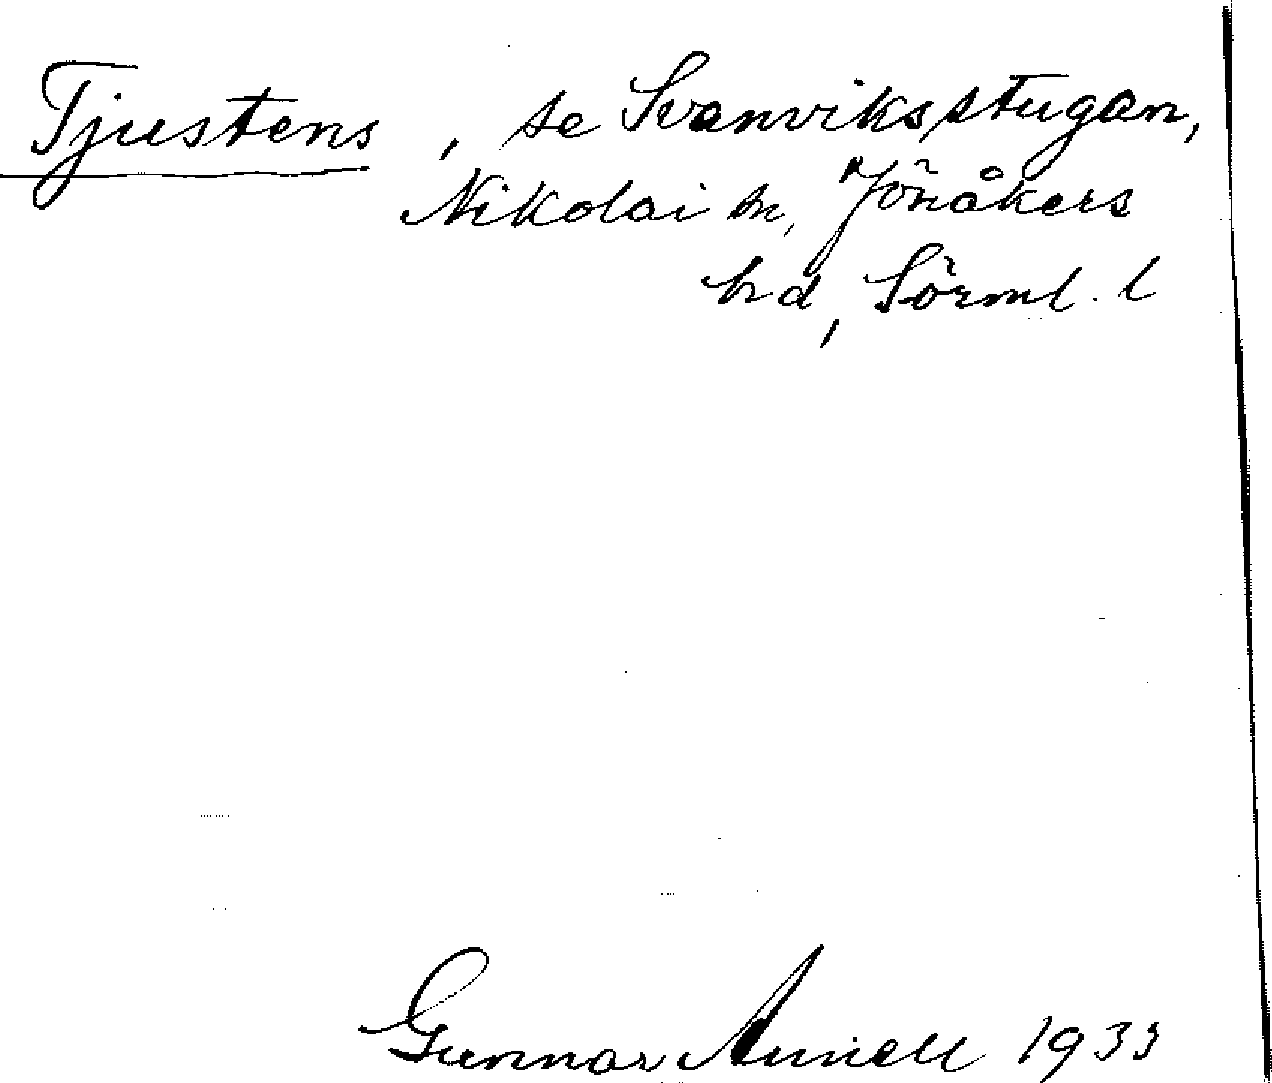 Tjustens, se Svanviksstugan,
Nikolai sn, Jönåkers
hd, Sörml. l
Gunnar Aunell 1933